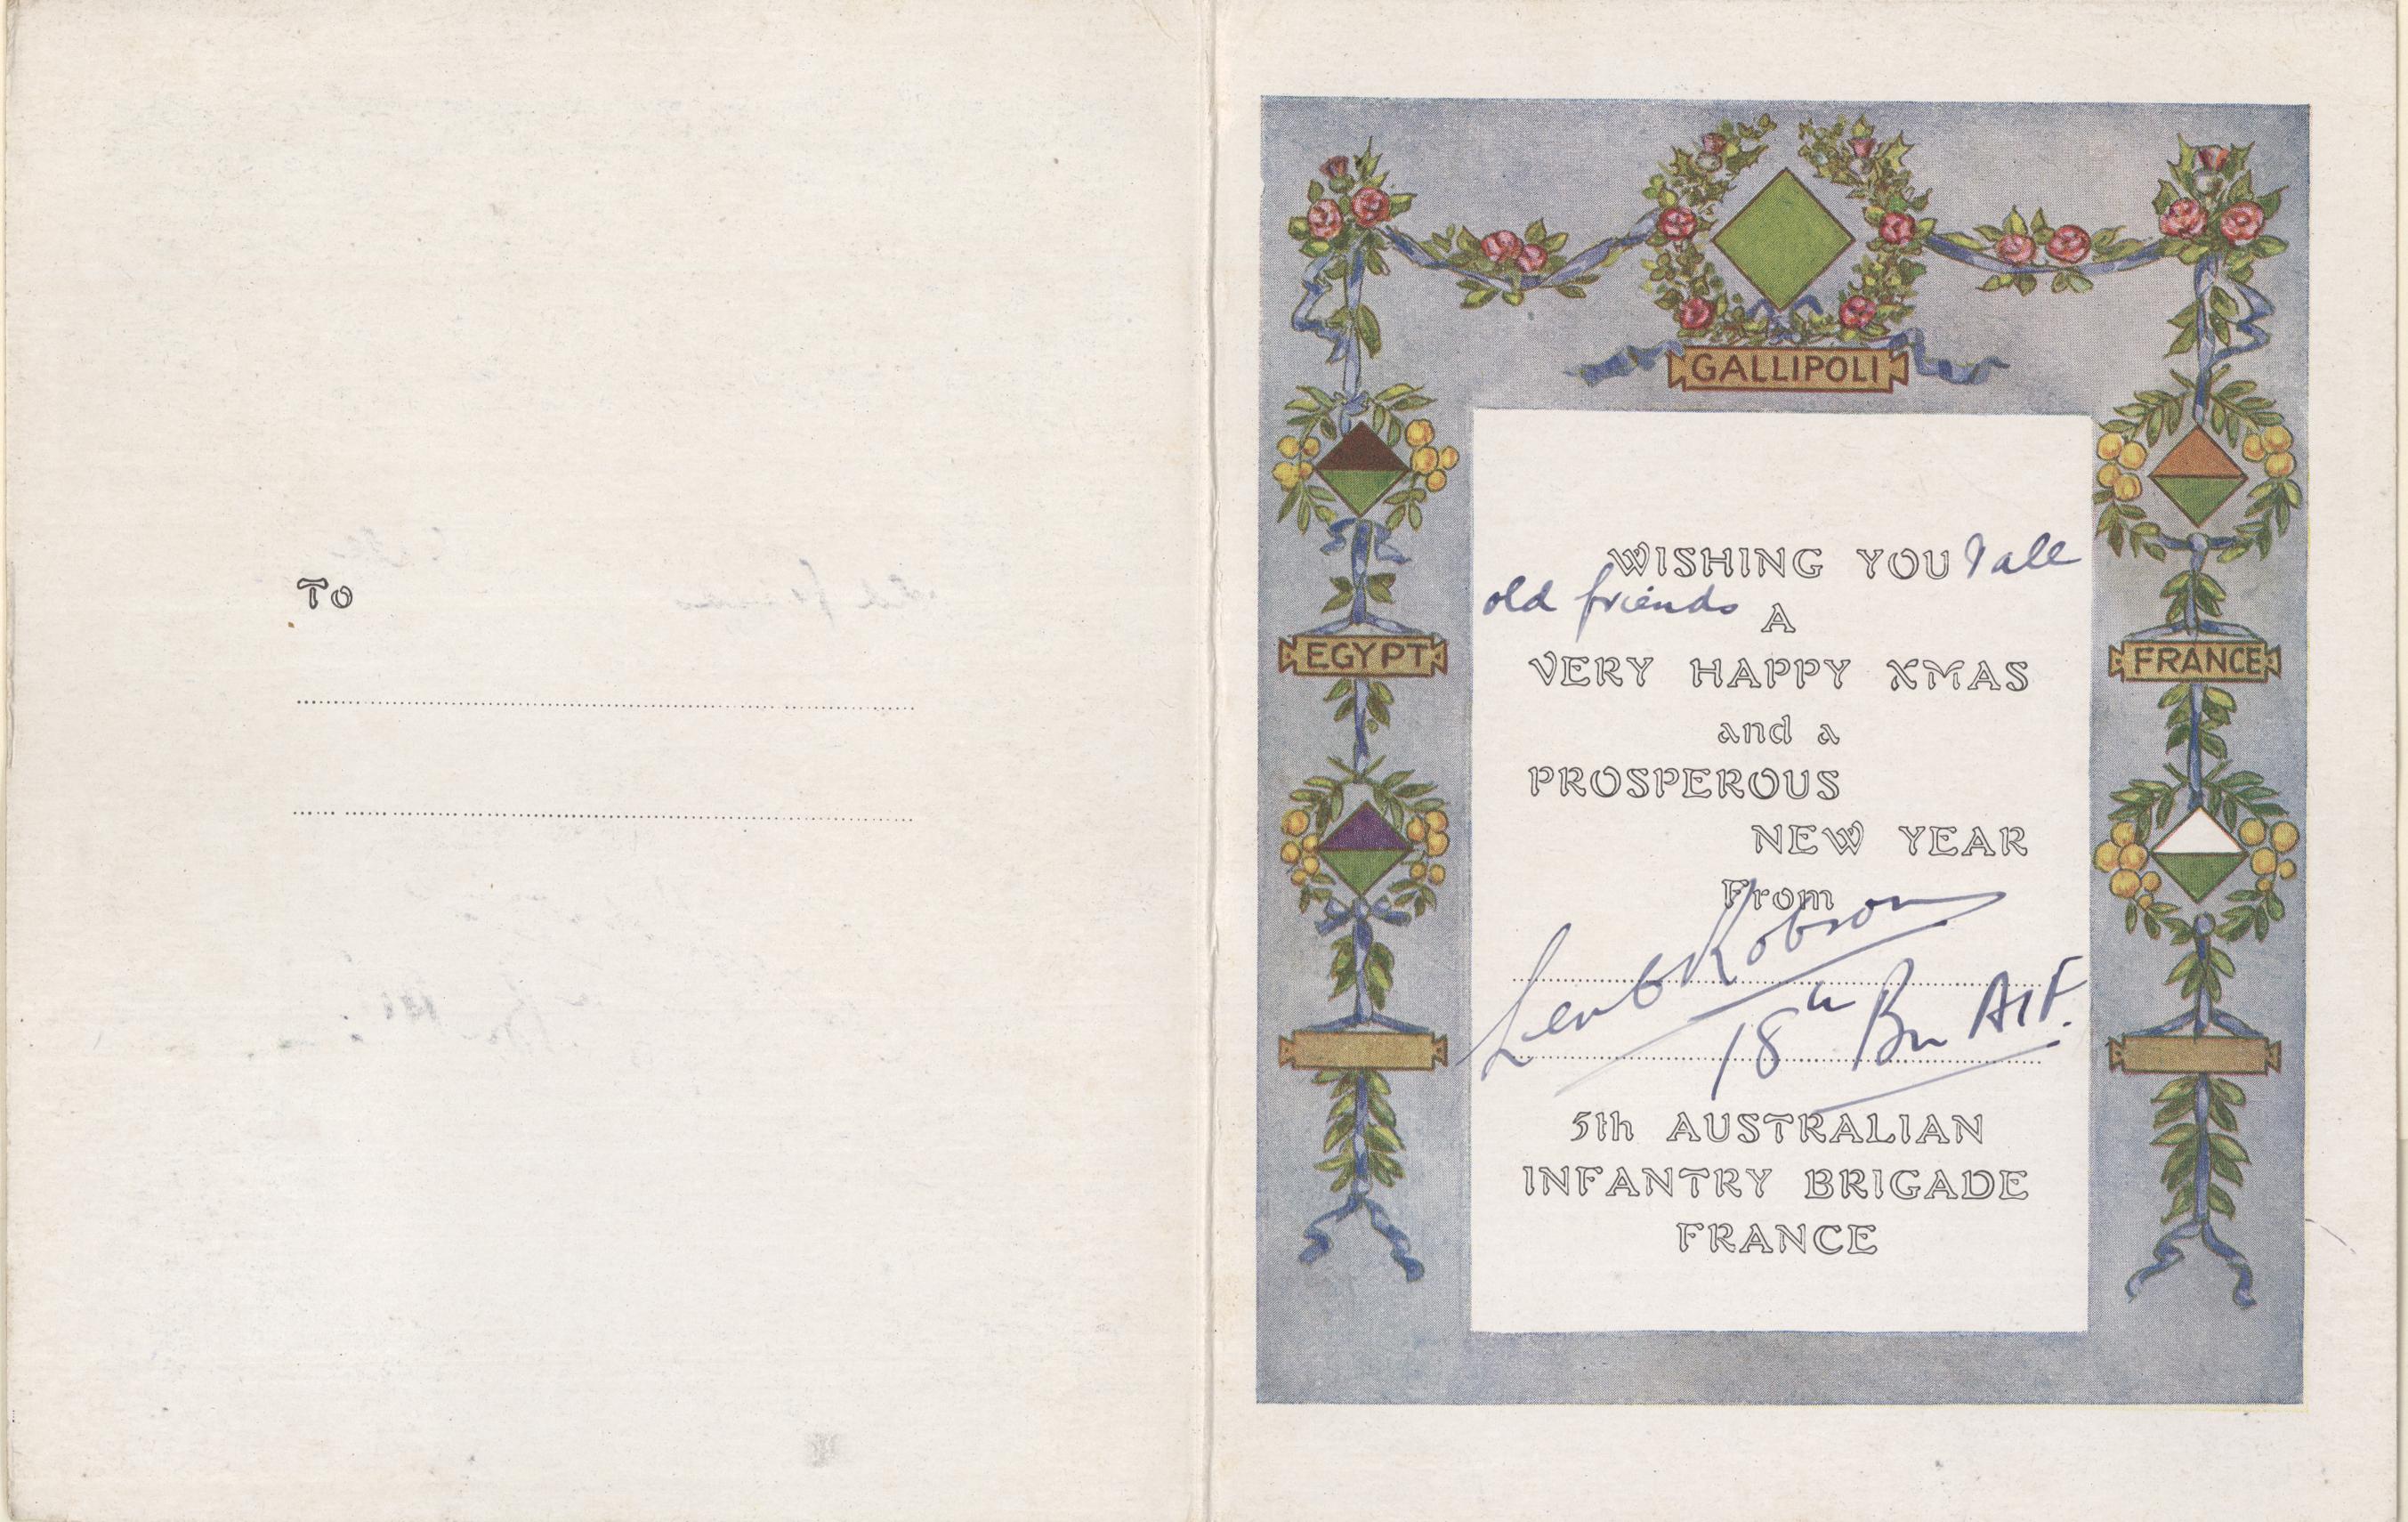 To
GALLIPOLI
EGYPT
FRANCE
WISHING YOU & all
old friends A
VERY HAPPY XMAS
and a
PROSPEROUS
NEW YEAR
From
Robson
18th Bn AIF.
5th AUSTRALIAN
INFANTRY BRIGADE
FRANCE